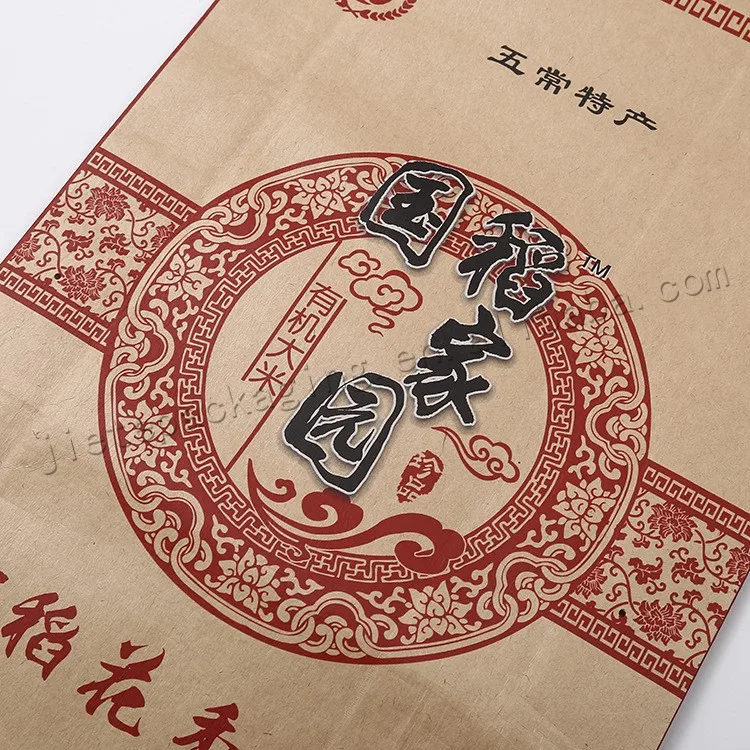 五常特产
国稻家园™
有机大米
稻花香